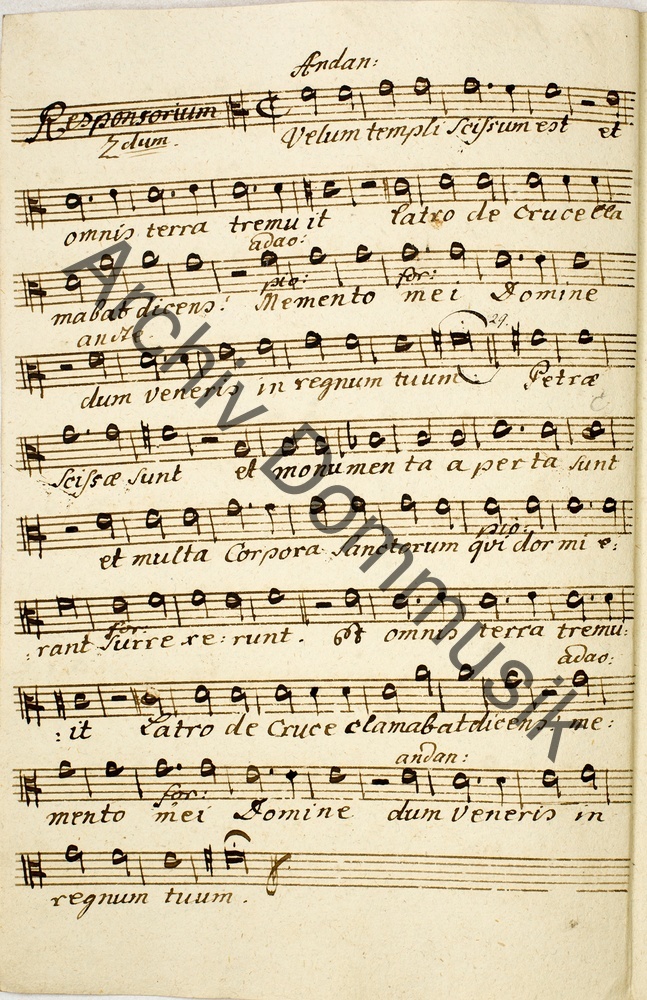 Andan:
Responsorium
2dum.
Velum templi scissum est et
omnis terra tremuit latro de Cruce cla
adao:
pio: for:
mabat dicens: Memento mei Domine
andte
29.
dum veneris in regnum tuum. Petræ
scissæ sunt et monumenta aperta sunt
pio:
et multa Corpora Sanctorum qui dormi e:
for:
:rant surre xe:runt. et omnis terra tremu:
adao:
:it Latro de Cruce clamabat dicens: me:
andan:
for:
mento mei Domine dum Veneris in
regnum tuum.
Archiv Dommusik